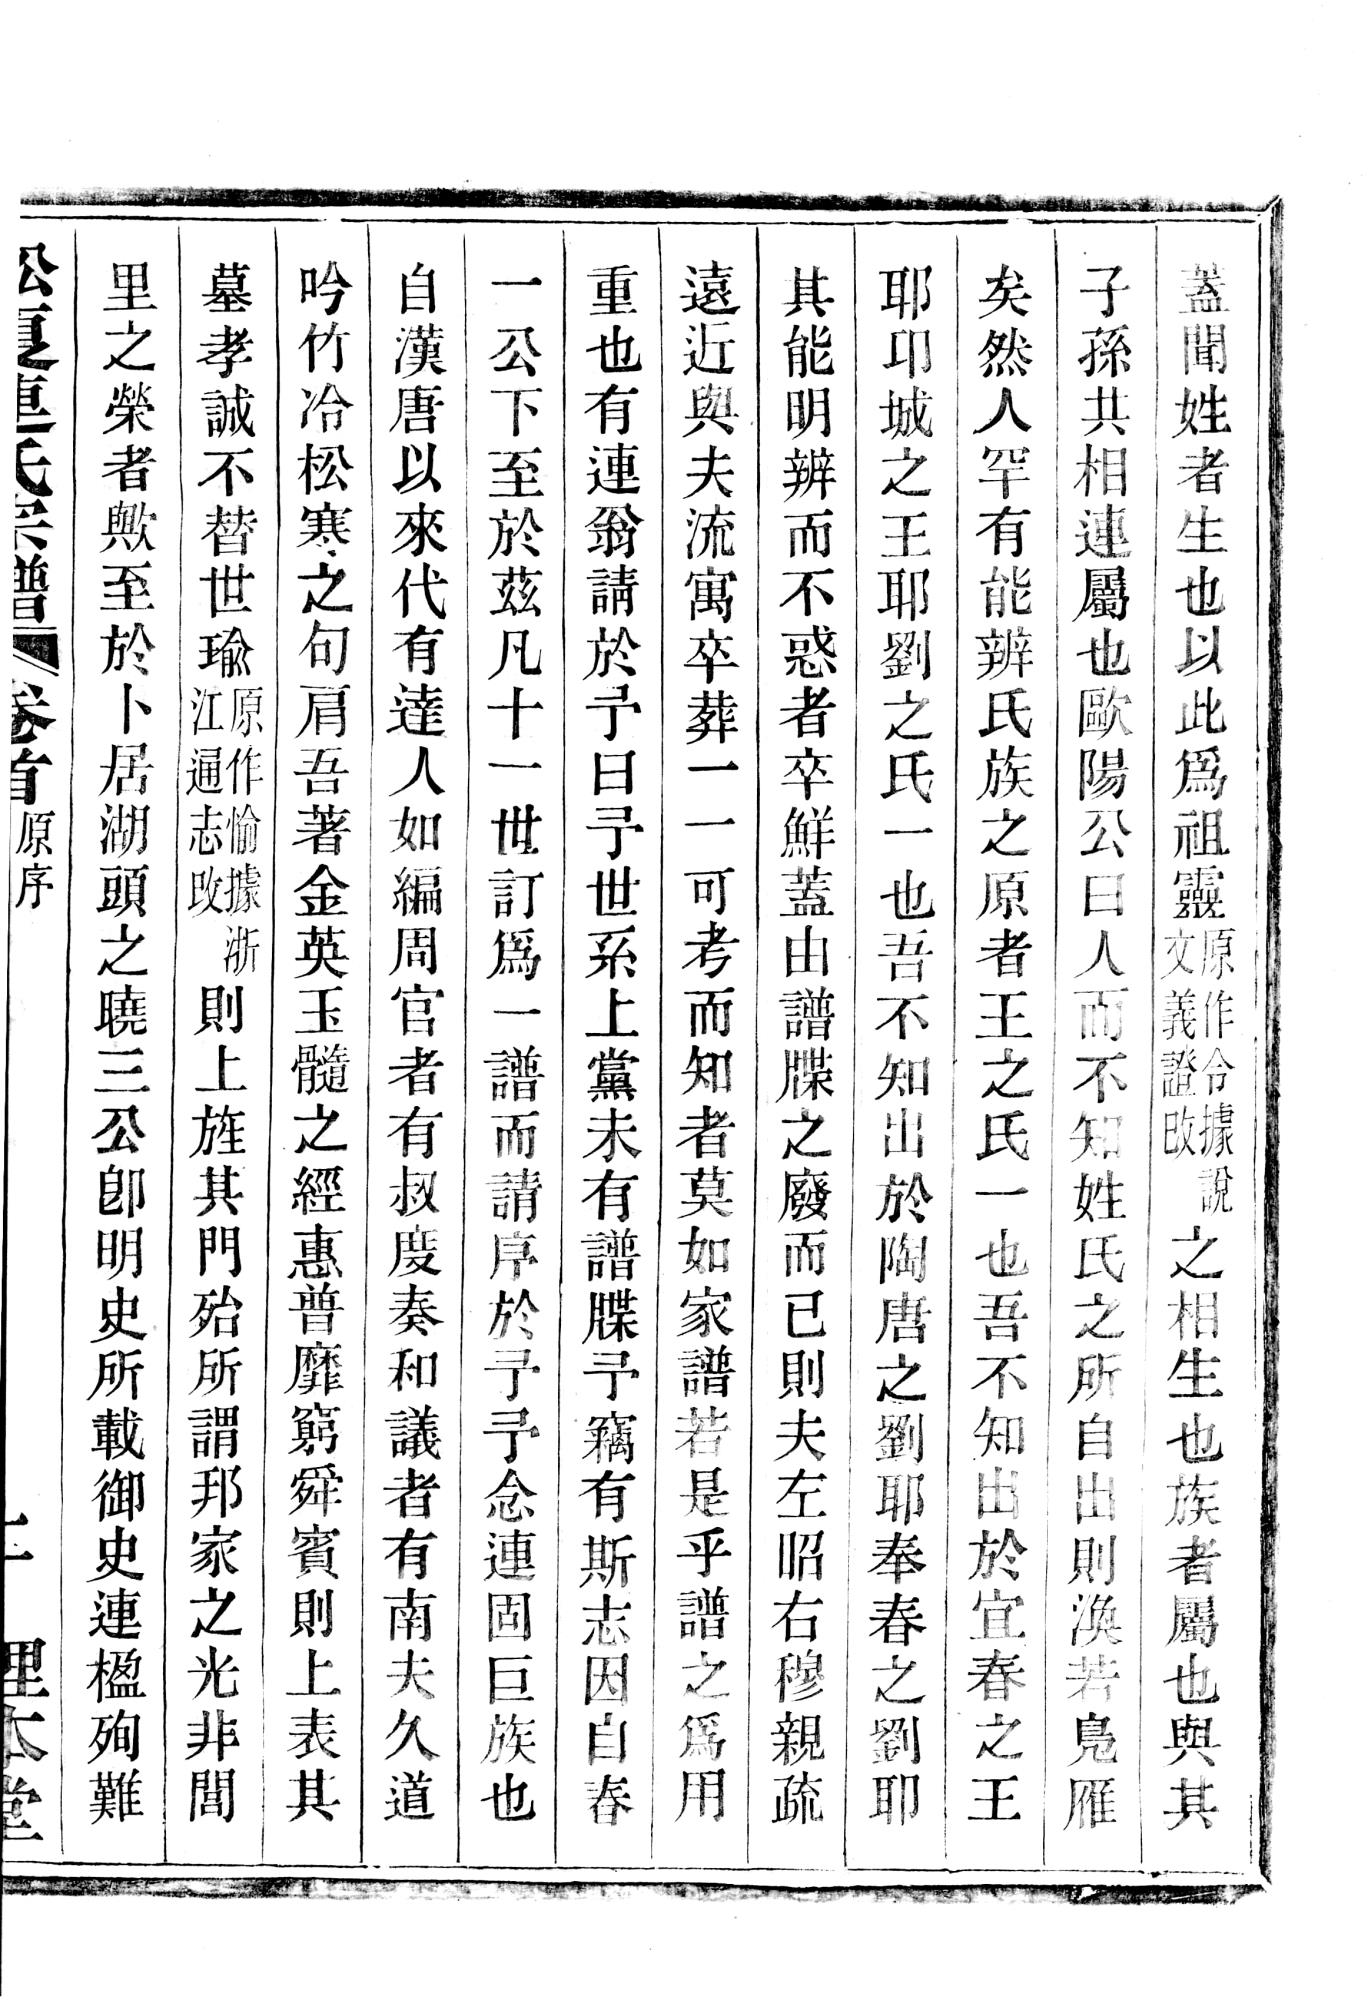 蓋聞姓者生也以此爲祖靈原作令據說文義證改之相生也族者屬也與其
子孫共相連屬也歐陽公曰人而不知姓氏之所自出則渙若鳧雁
矣然人罕有能辨氏族之原者王之氏一也吾不知出於宜春之王
耶卭城之王耶劉之氏一也吾不知出於陶唐之劉耶奉春之劉耶
其能明辨而不惑者卒鮮蓋由譜牒之廢而已則夫左昭右穆親疏
遠近與夫流寓卒葬一一可考而知者莫如家譜若是乎譜之爲用
重也有連翁請於予曰予世系上黨未有譜牒予竊有斯志因自春
一公下至於茲凡十一世訂爲一譜而請序於予予念連固巨族也
自漢唐以來代有達人如編周官者有叔度奏和議者有南夫久道
吟竹冷松寒之句肩吾著金英玉髓之經惠普靡窮舜賓則上表其
墓孝誠不替世瑜原作愉據浙江通志改則上旌其門殆所謂邦家之光非閭
里之榮者歟至於卜居湖頭之曉三公卽明史所載御史連楹殉難
松夏連氏宗譜 卷首 原序 理本堂